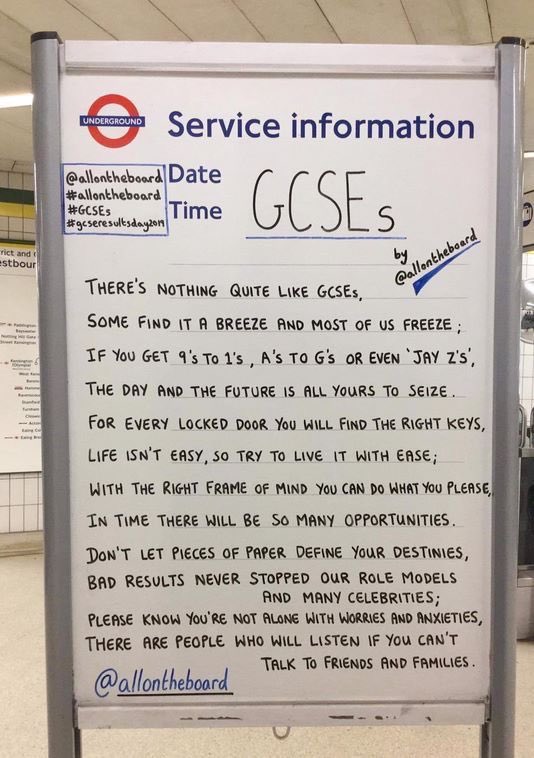 UNDERGROUND
Service information
@allontheboard
#allontheboard
#GCSEs
#gcseresultsday2019
Date
Time
GCSEs
by
@allontheboard
THERE'S NOTHING QUITE LIKE GCSEs,
SOME FIND IT A BREEZE AND MOST OF US FREEZE;
IF YOU GET 9'S TO 1'S, A'S TO G'S OR EVEN 'JAY Z'S',
THE DAY AND THE FUTURE IS ALL YOURS TO SEIZE.
FOR EVERY LOCKED DOOR YOU WILL FIND THE RIGHT KEYS,
LIFE ISN'T EASY, SO TRY TO LIVE IT WITH EASE;
WITH THE RIGHT FRAME OF MIND YOU CAN DO WHAT YOU PLEASE,
IN TIME THERE WILL BE SO MANY OPPORTUNITIES.
DON'T LET PIECES OF PAPER DEFINE YOUR DESTINIES,
BAD RESULTS NEVER STOPPED OUR ROLE MODELS
AND MANY CELEBRITIES;
PLEASE KNOW YOU'RE NOT ALONE WITH WORRIES AND ANXIETIES,
THERE ARE PEOPLE WHO WILL LISTEN IF YOU CAN'T
TALK TO FRIENDS AND FAMILIES.
@allontheboard
rict and
estbour
Paddington
Bayswater
Notting Hill Gate
Street Kensington
Kensington
(Olympia)
West Ken